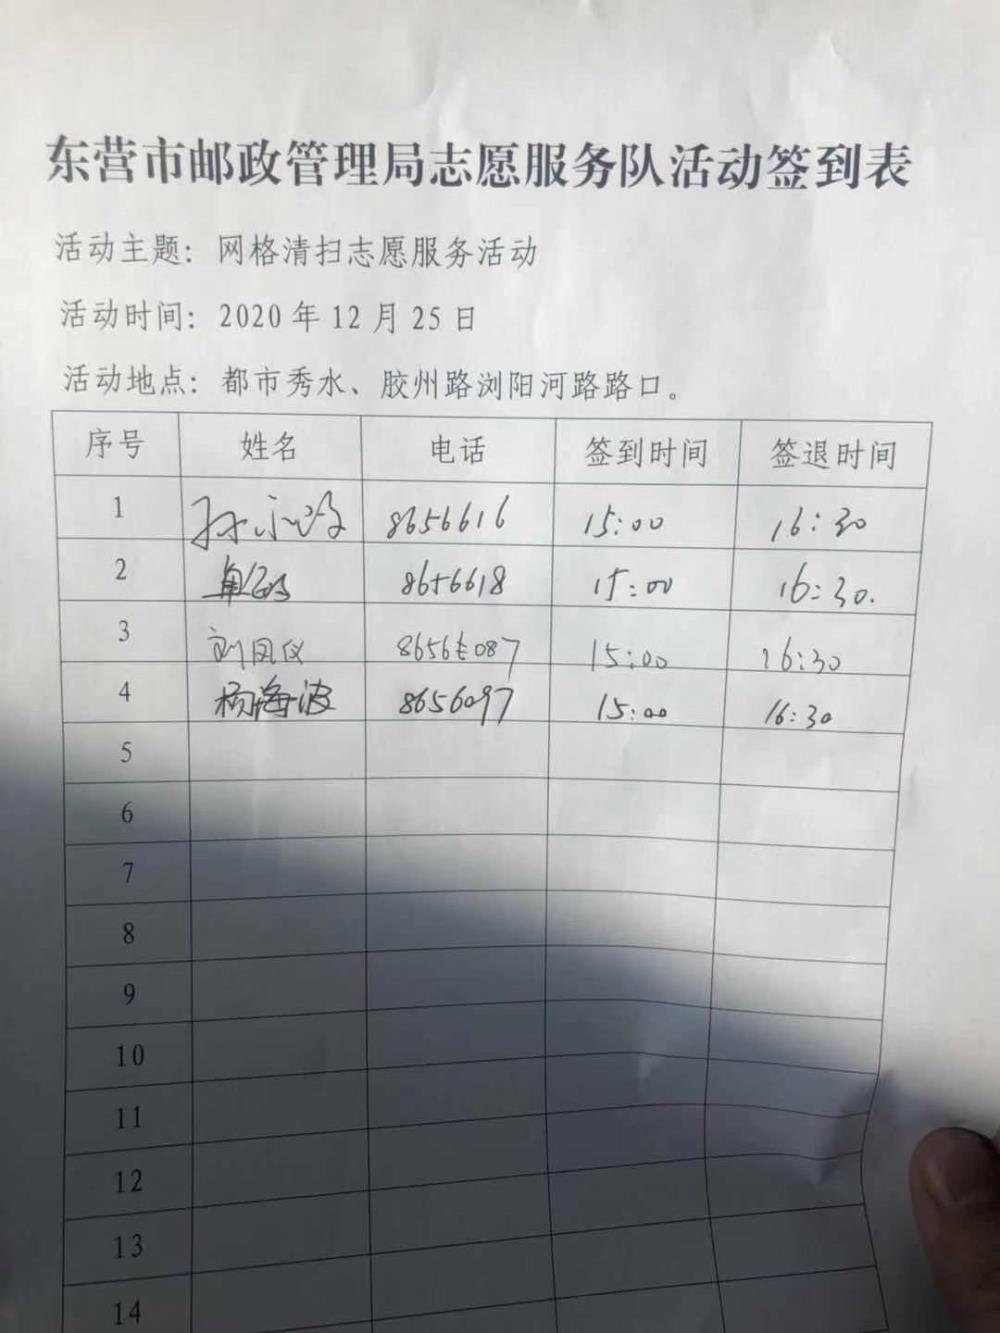 东营市邮政管理局志愿服务队活动签到表
活动主题：网格清扫志愿服务活动
活动时间：2020 年 12 月 25 日
活动地点：都市秀水、胶州路浏阳河路路口。
序号 姓名 电话 签到时间 签退时间
1 8656616 15:00 16:30
2 8656618 15:00 16:30.
3 刘凤仪 15:00 16:30
4 杨海波 8656097 15:00 16:30
5
6
7
8
9
10
11
12
13
14